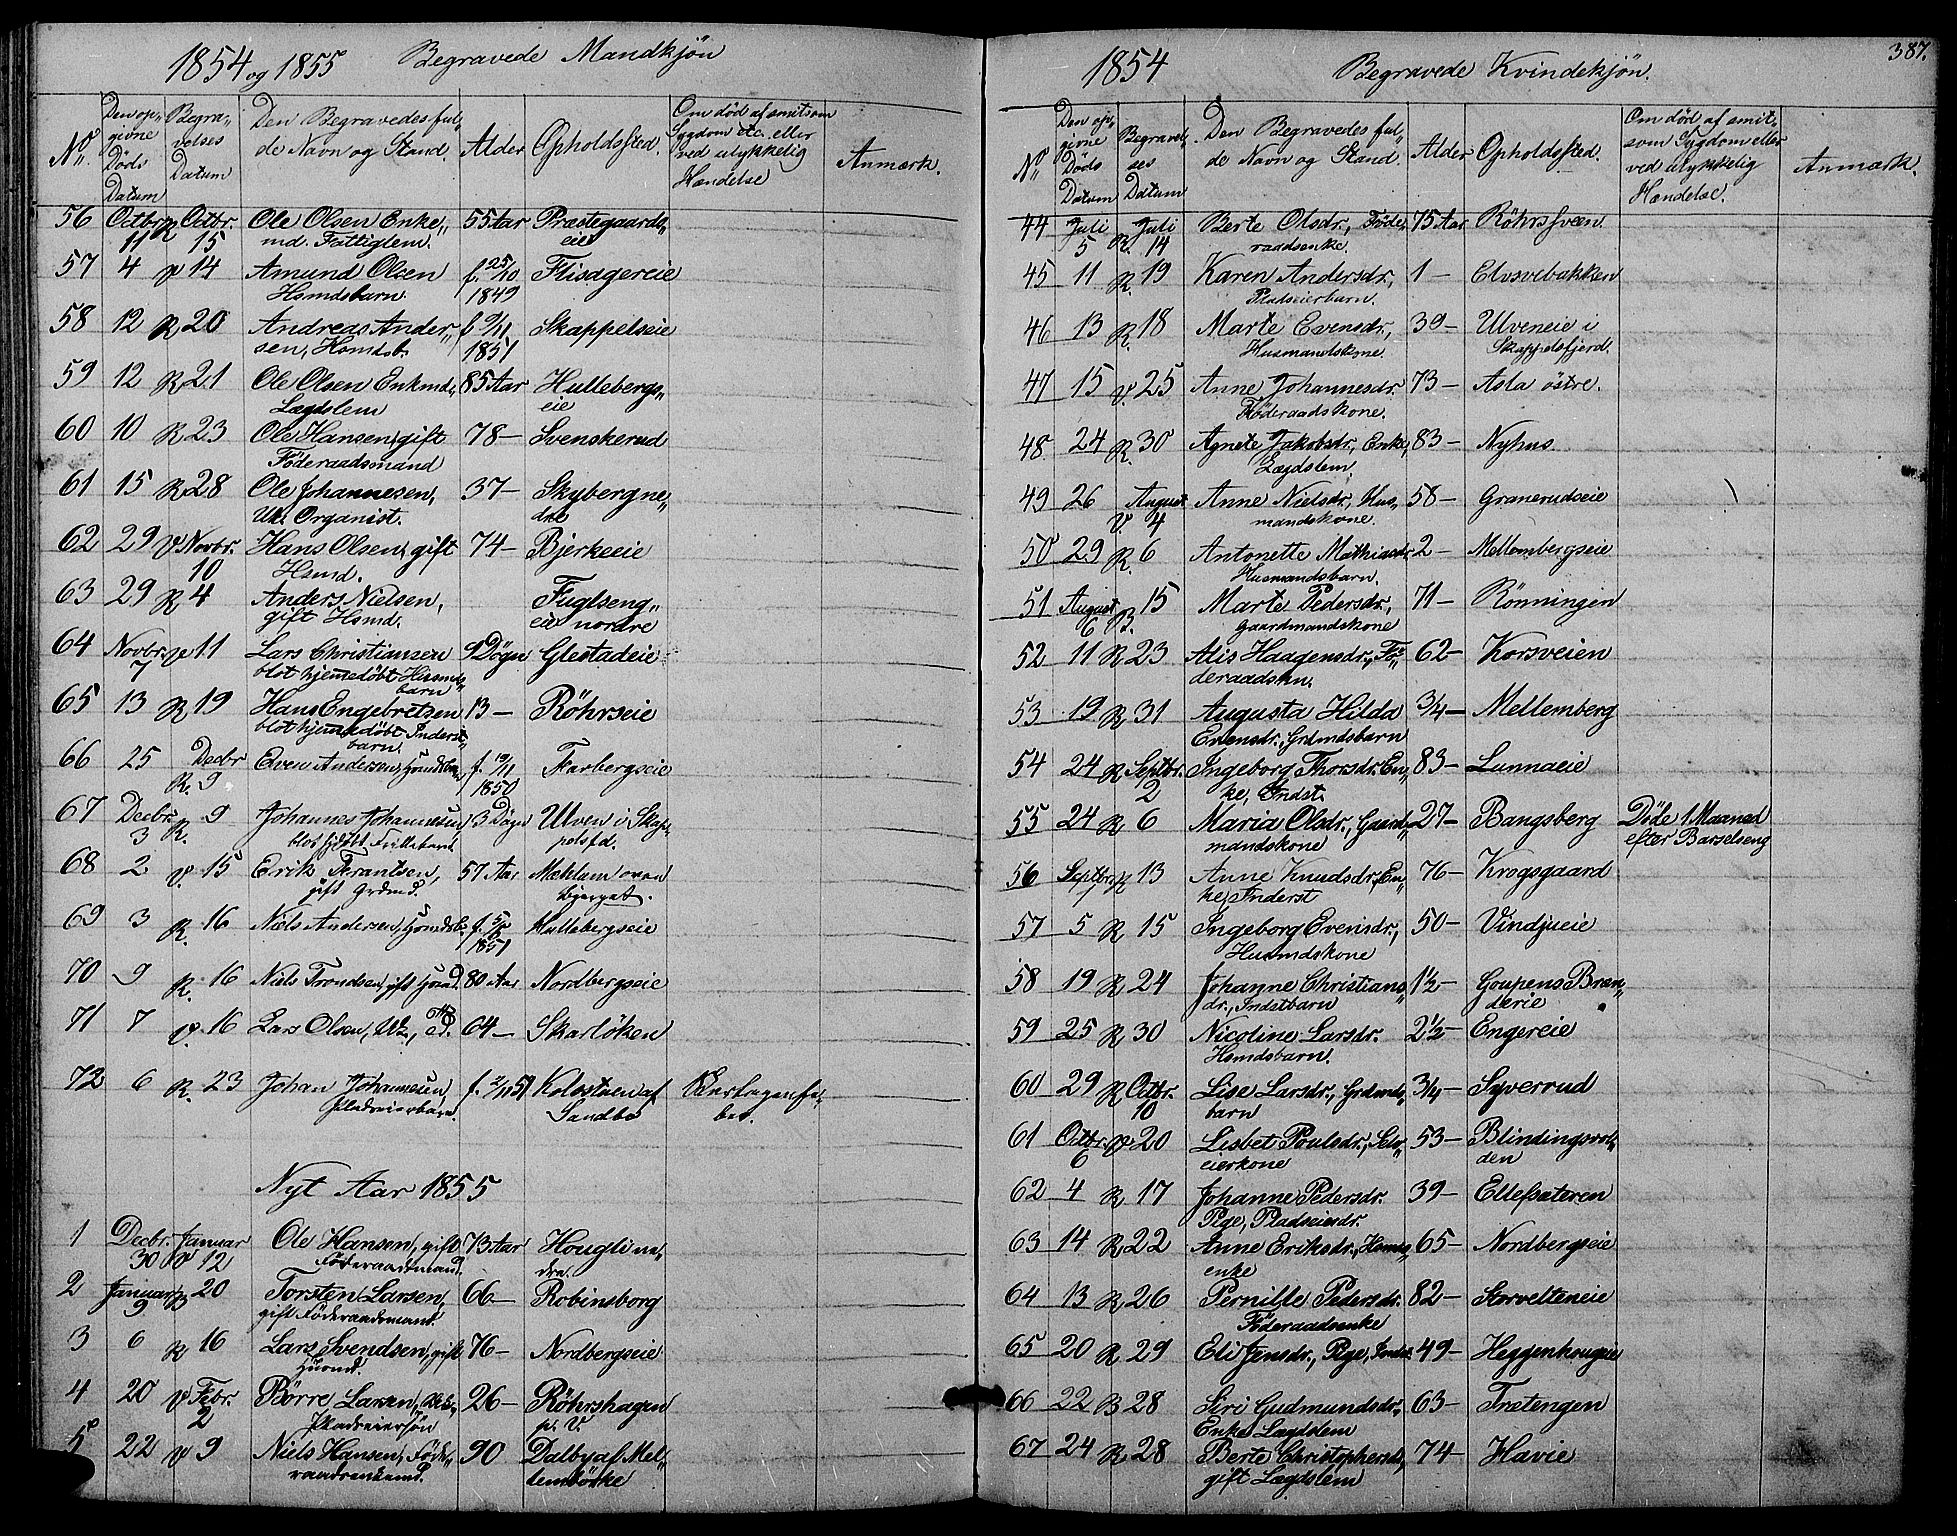 1854 og 1855 Begravede Mandkjön
No. Den opgivne Döds Datum Begravelses Datum Den Begravedes fulde Navn og Stand. Alder Opholdssted. Om död af smitsom Sygdom etc. eller ved ulykkelig Hændelse Anmærk.
56 Octbr. 11 R Octbr. 15 Ole Olsen Enke„ 55 Aar Præstegaards„
md. Fattiglem. eie
57 4 V 14 Amund Olsen f. 25/10 Flisagereie
Hsmdsbarn. 1849
58 12 R 20 Andreas Ander„ f. 9/11 Skappelseie
sen, Hsmdsb. 1851
59 12 R 21 Ole Olsen Enkmd. 85 Aar Hullebergs„
Lægdslem eie
60 10 R 23 Ole Hansen, gift 78 – Svenskerud
Föderaadsmand
61 15 R 28 Ole Johannesen, 37 – Skybergne„
Uk. Organist. dre
62 29 V Novbr. 10 Hans Olsen, gift 74 – Bjerkeeie
Hsmd.
63 29 R 4 Anders Nielsen, Fuglseng„
gift Hsmd. eie nordre
64 Novbr. 7 V 11 Lars Christiansen 9 Dögn Glestadeie
blot hjemmedöbt Husmds„
barn
65 13 R 19 Hans Engebretsen 13 – Röhrseie
blot hjemmedöbt Inderst„
barn.
66 25 R. Decbr 9 Even Andersen, f. 19/11 Farbergseie
1850
67 Decbr. 3 R. 9 Johannes Johannesen 3 Dögn Ulven i Skap„
pelsfd.
68 2 V. 15 Erik Frantsen, 57 Aar Mæhlum oven
gift Grdmd. bjerget.
69 3 R. 16 Niels Andersen, Hsmdsb. f. 5/6 Hullebergseie
1851
70 9 R. 16 Niels Trondsen, gift Hsmd. 80 Aar Nordbergseie
71 7 V. 16 Lars Olsen, 64 – Skarlöken
72 6 R. 23 Johan Johannesen f. 51 Kolostuen af
Pladseierbarn Sandbo
Nyt Aar 1855
1 Decbr. 30 V Januar 12 Ole Hansen, gift 73 Aar Hougli ne„
Föderaadsmand. dre.
2 Januar 9 R 20 Torsten Larsen, 66 – Robinsborg
gift Föderaadsmand.
3 6 R 16 Lars Svendsen, gift 76 – Nordbergseie
Husmd.
4 20 V Febr. 2 Börre Larsen, 26 – Röhrshagen
Pladseiersön p. V.
5 22 V 9 Niels Hansen, Föde„ 90 Dalby af Mel„
raadsenkemd. lembörke
387.
1854 Begravede Kvindekjön.
No. Den opgivne Döds Datum Begravelses Datum Den Begravedes fulde Navn og Stand. Alder Opholdssted. Om död af smitsom Sygdom eller ved ulykkelig Hændelse. Anmærk.
44 Juli 5 R. Juli 14 Berte Olsdr., Föde„ 75 Aar Röhrssveen
raadsenke.
45 11 R. 19 Karen Andersdr., 1 – Elvsvebakken
Pladseierbarn.
46 13 R. 18 Marte Evensdr., 39 – Ulveneie i
Husmandskone. Skappelsfjerd.
47 15 V. 25 Anne Johannesdr. 73 – Asla östre.
Föderaadskone.
48 24 R. 30 Agnete Jakobsdr., Enke, 83 – Nyhus
Lægdslem
49 26 V. August 4 Anne Nielsdr., Hus„ 58 – Granerudseie
mandskone.
50 29 R. 6 Antonette Mathiasdr. 2 – Mellembergseie
Husmandsbarn.
51 August 6 B. 15 Marte Pedersdr., 71 – Rönningen
Gaardmandskone
52 11 R 23 Alis Haagensdr., Fö„ 62 – Korsveien
deraadskn.
53 19 R 31 Augusta Hilda 3/4 – Mellemberg
Evensdr., Grdmdsbarn
54 24 R Septbr. 2 Ingeborg Thorsdr. En„ 83 – Lunnaeie
ke, Indst.
55 24 R 6 Maria Olsdr., Gaard„ 27 – Bangsberg Döde 1 Maaned
mandskone efter Barselseng
56 Septbr. 1 R 13 Anne Knudsdr., En„ 76 – Krogsgaard
ke, Inderst
57 5 R 15 Ingeborg Evensdr., 50 – Vindjueie
Husmdskone
58 19 R 24 Johanne Christians„ 1½ – Goupens Bræn„
dr., Indstbarn derie
59 25 R 30 Nicoline Larsdr. 2½ – Engereie
Hsmdsbarn.
60 29 R Octbr. 10 Lise Larsdr., Grdmds„ 3/4 – Syverrud
barn
61 Octbr. 6 V 20 Lisbet Poulsdr., Selv„ 53 – Blindingsvol„
eierkone den
62 4 R 17 Johanne Pedersdr. 39 – Ellefsæteren
Pige, Pladseierdr.
63 14 R 22 Anne Eriksdr., Hsmds„ 65 – Nordbergseie
enke
64 13 R 26 Pernille Pedersdr. 82 – Storvelteneie
Föderaadsenke
65 20 R 29 Eli Jensdr., Pige, Inds. 49 – Heggenhougeie
66 22 B 28 Siri Gudmundsdr., 63 – Tretengen
Enke Lægdslem
67 24 R 28 Berte Christophersdr., 74 – Havie
gift Lægdslem